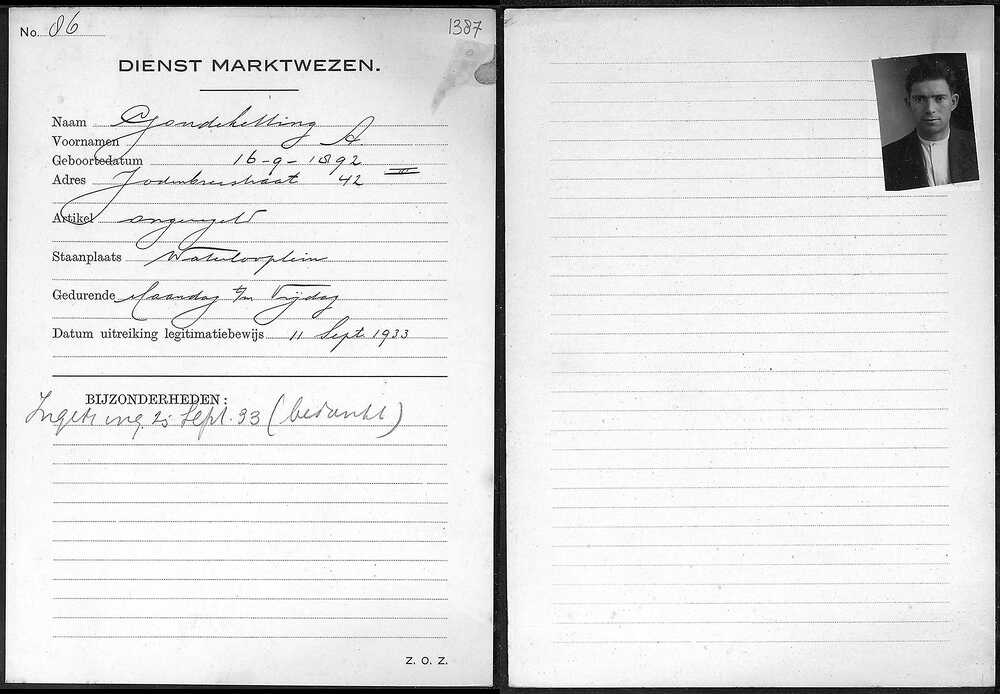 No. 86
1387
DIENST MARKTWEZEN.
Naam Goudeketting
Voornamen A
Geboortedatum 16-9-1892
Adres Jodenbreestraat 42 III
Artikel ongeregeld
Staanplaats Waterlooplein
Gedurende Maandag t/m Vrijdag
Datum uitreiking legitimatiebewijs 11 Sept. 1933
BIJZONDERHEDEN:
25 Sept. 33 (bedankt)
Z. O. Z.